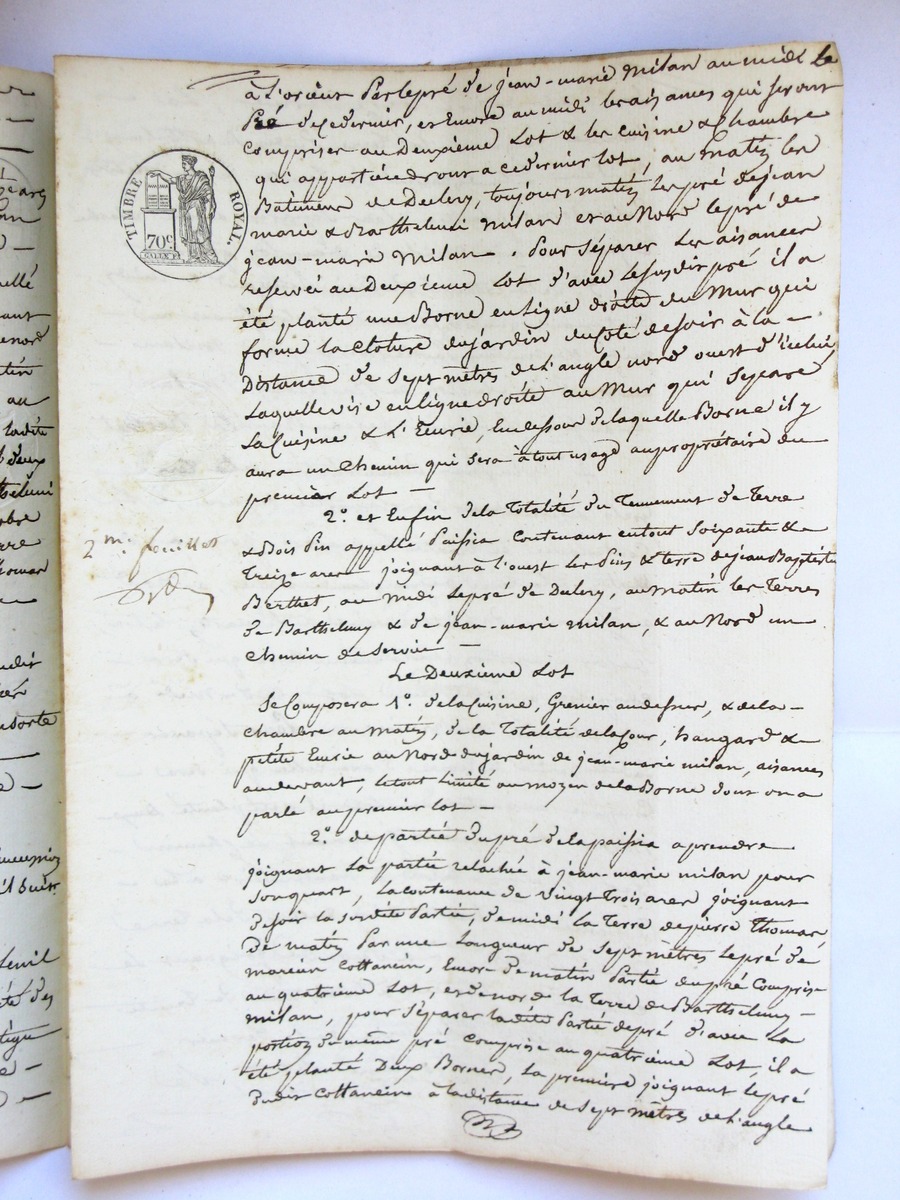 à l'orient Par le pré de jean-marie Milan au midi le
Pré de ce dernier, et Encore au midi les aisances qui seront
Comprises au Deuxième Lot & les cuisine & Chambre
qui appartiendront a ce dernier lot, au Matin les
Batiments de toujours matin les pré de jean
marie & Barthelemi Milan et au Nord le pré de
jean-marie Milan. Pour Séparer les aisances
reservé au Deuxième Lot d'avec le susdit pré il a
été planté une Borne en ligne droite du Mur qui
forme la cloture du jardin du côté de soir à la -
Distance de Sept mètres de l'angle nord ouest d'icelui,
Laquelle vise en ligne droite au Mur qui Sépare
la Cuisine & l'Ecurie, En dessous de laquelle Borne il y
aura un chemin qui sera à tout usage au propriétaire du
premier Lot -
2º. et Enfin de la Totalité du Tennement de Terre
& Bois Pin appellé Paissia Contenant en tout Soixante &
Treize ares joignant à l'ouest les Pins & terre de jean Baptiste
Berthet, au Midi le pré de au matin les Terres
de Barthelemy & de jean-marie Milan, & au Nord un
Chemin de Service -
Le Deuxième Lot
Se Composera 1º. de la Cuisine, Grenier au dessus, & de la -
chambre au Matin, de la Totalité de la Cour, hangard &
petite Ecurie au Nord du jardin de jean-marie milan, aisances
au devant, le tout limité au moyen de la Borne dont on a
parlé au premier lot -
2º. de partie du pré de la paissia a prendre
joignant la partie relachée à jean-marie milan pour
Son quart, la contenance de Vingt Trois ares joignant
de soir la susdite Partie, de midi la Terre de pierre Thomas
de matin Par une Longueur de Sept mètres le pré de
Cottancin, Encore de matin Partie du pré Comprise
au quatrième Lot, et de nord la Terre de Barthelemy -
Milan, pour séparer la dite Partie de pré d'avec la
portion du même pré Comprise au quatrième Lot, il a
été planté Deux Bornes, la première joignant le pré
dudit Cottancin à la distance de Sept mètres de l'angle
TIMBRE ROYAL.
70ᶜ
2me. feuillet